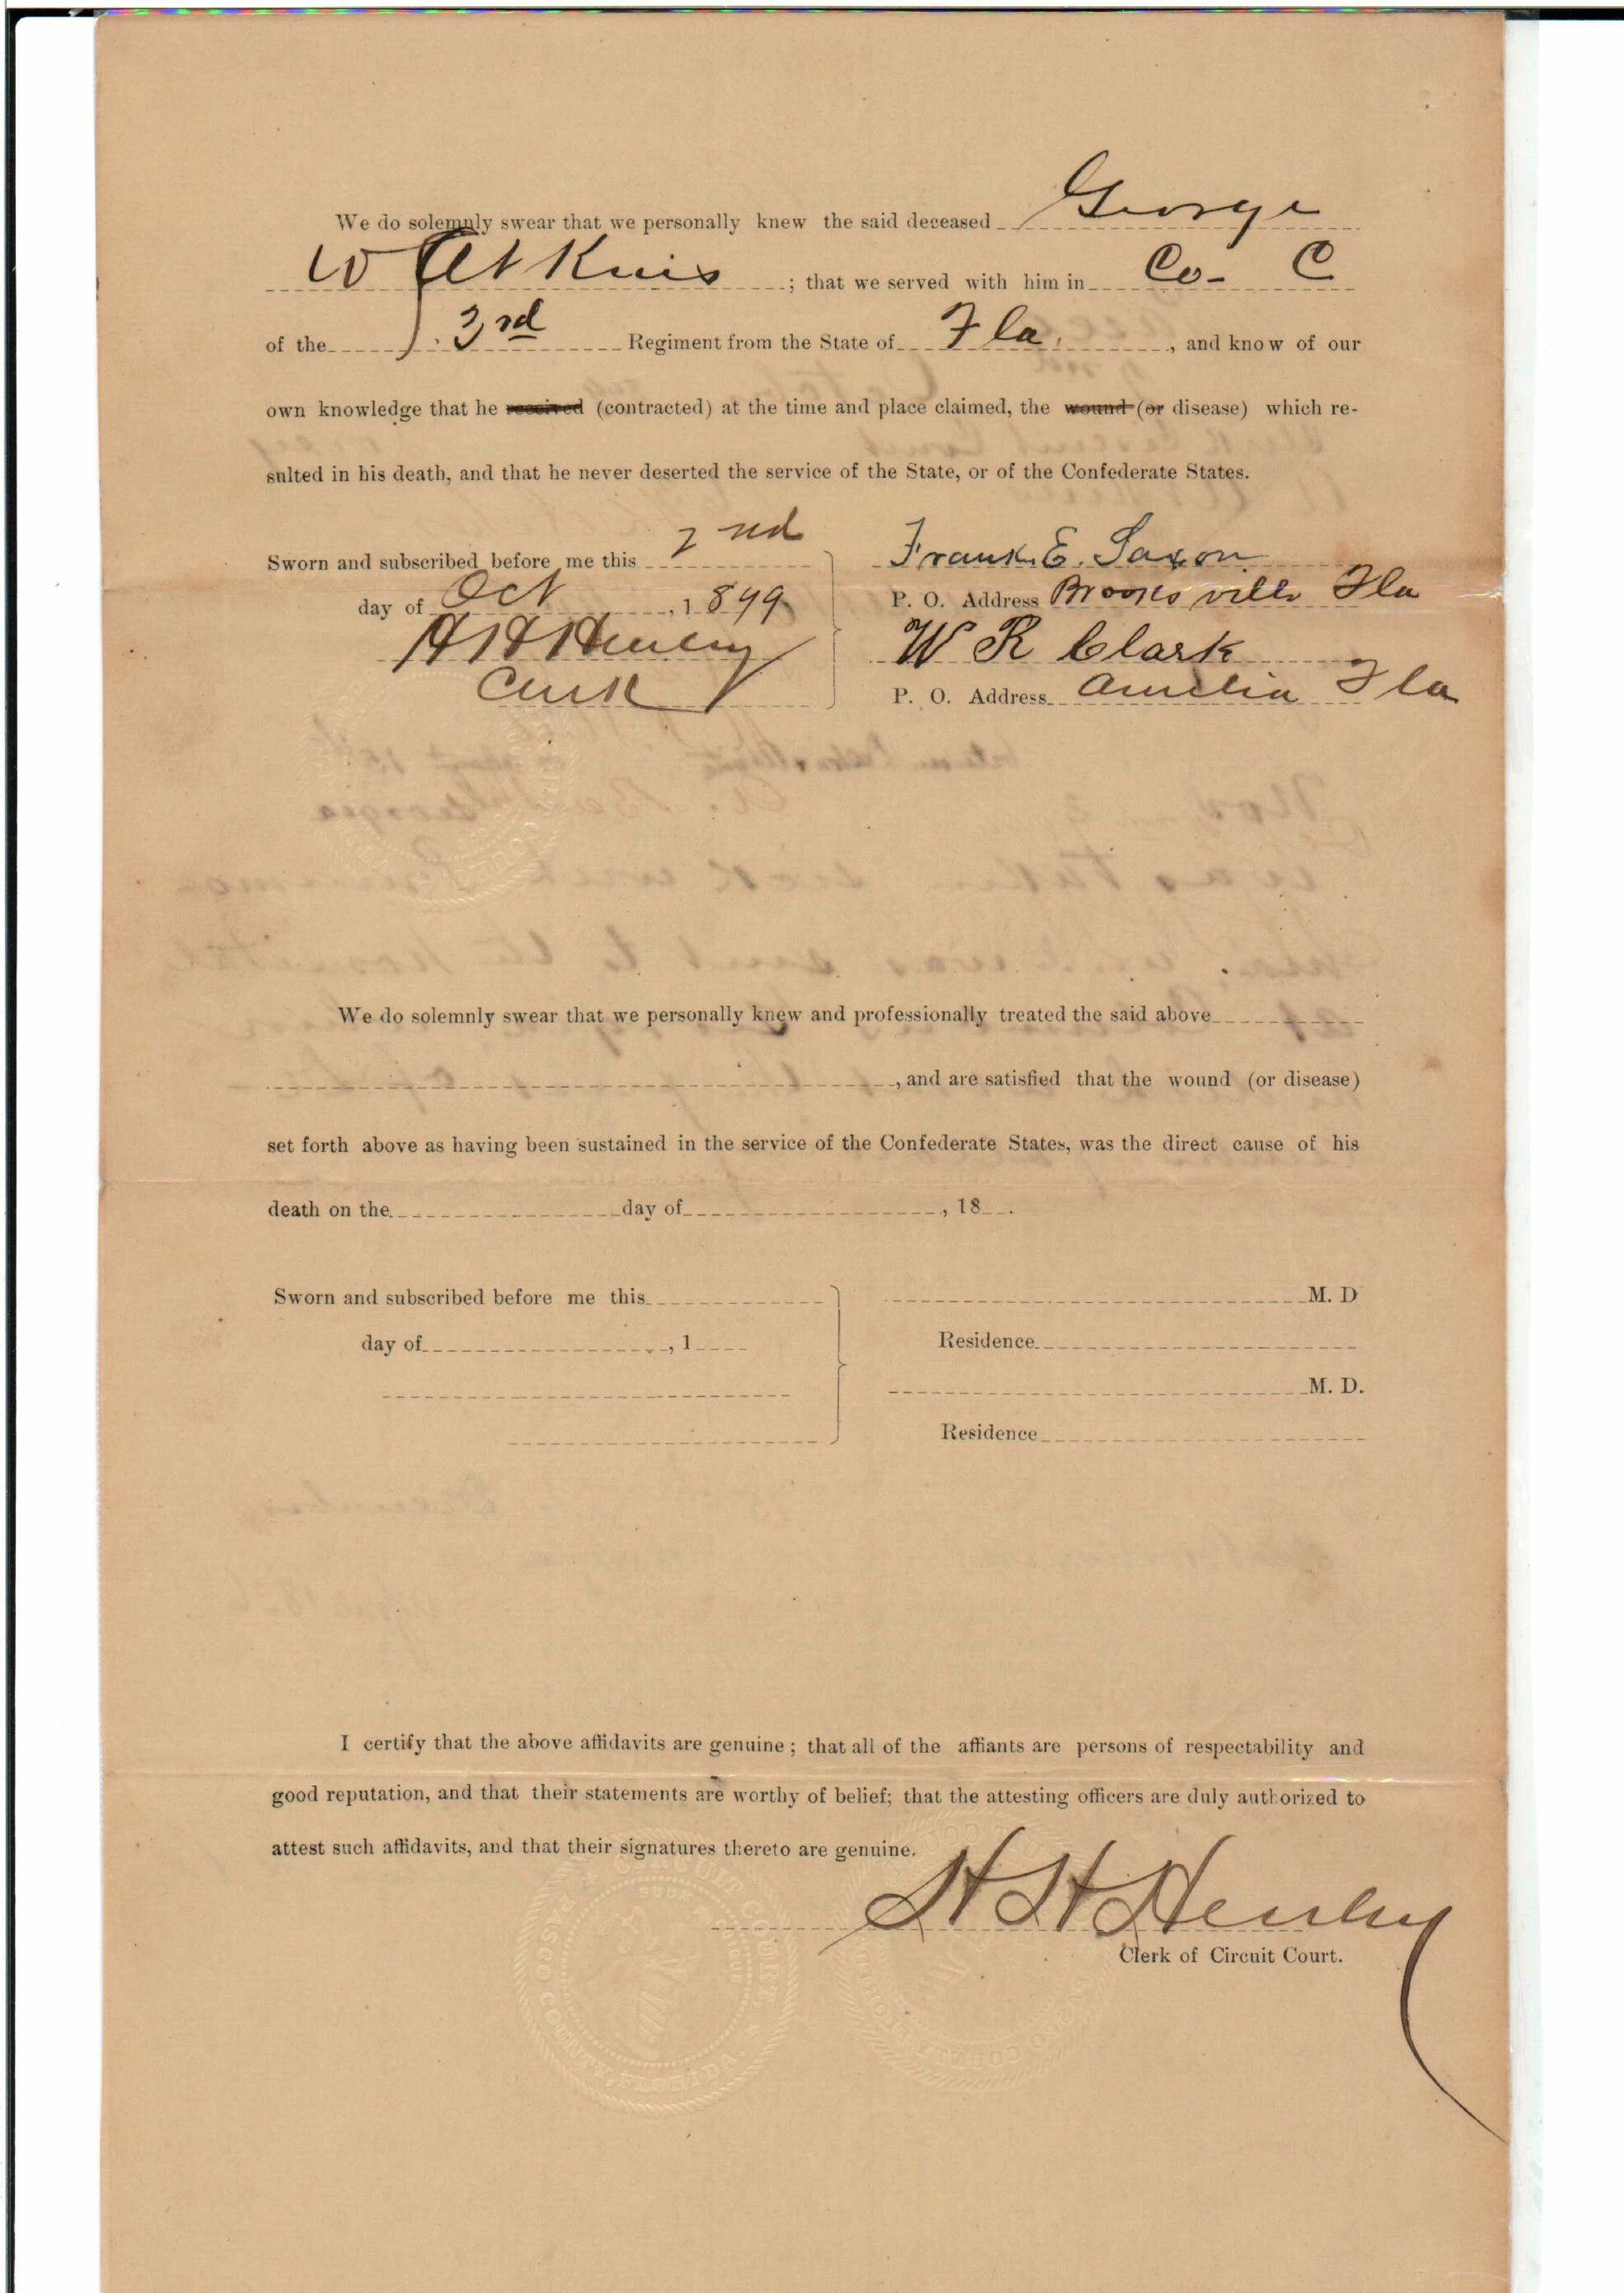 We do solemnly swear that we personally knew the said deceased George
W Atkins ; that we served with him in Co- C
of the 3rd Regiment from the State of Fla. , and know of our
own knowledge that he received (contracted) at the time and place claimed, the wound (or disease) which re-
sulted in his death, and that he never deserted the service of the State, or of the Confederate States.
Sworn and subscribed before me this 2nd
day of Oct , 1899
H H Henley
Clerk
Frank. E. Saxon
P. O. Address Brooksville Fla
W R Clark
P. O. Address Amelia Fla
We do solemnly swear that we personally knew and professionally treated the said above
, and are satisfied that the wound (or disease)
set forth above as having been sustained in the service of the Confederate States, was the direct cause of his
death on the day of , 18 .
Sworn and subscribed before me this
day of , 1
M. D
Residence
M. D.
Residence
I certify that the above affidavits are genuine ; that all of the affiants are persons of respectability and
good reputation, and that their statements are worthy of belief; that the attesting officers are duly authorized to
attest such affidavits, and that their signatures thereto are genuine.
H H Henley
Clerk of Circuit Court.
CIRCUIT COURT,
PASCO COUNTY, FLORIDA.